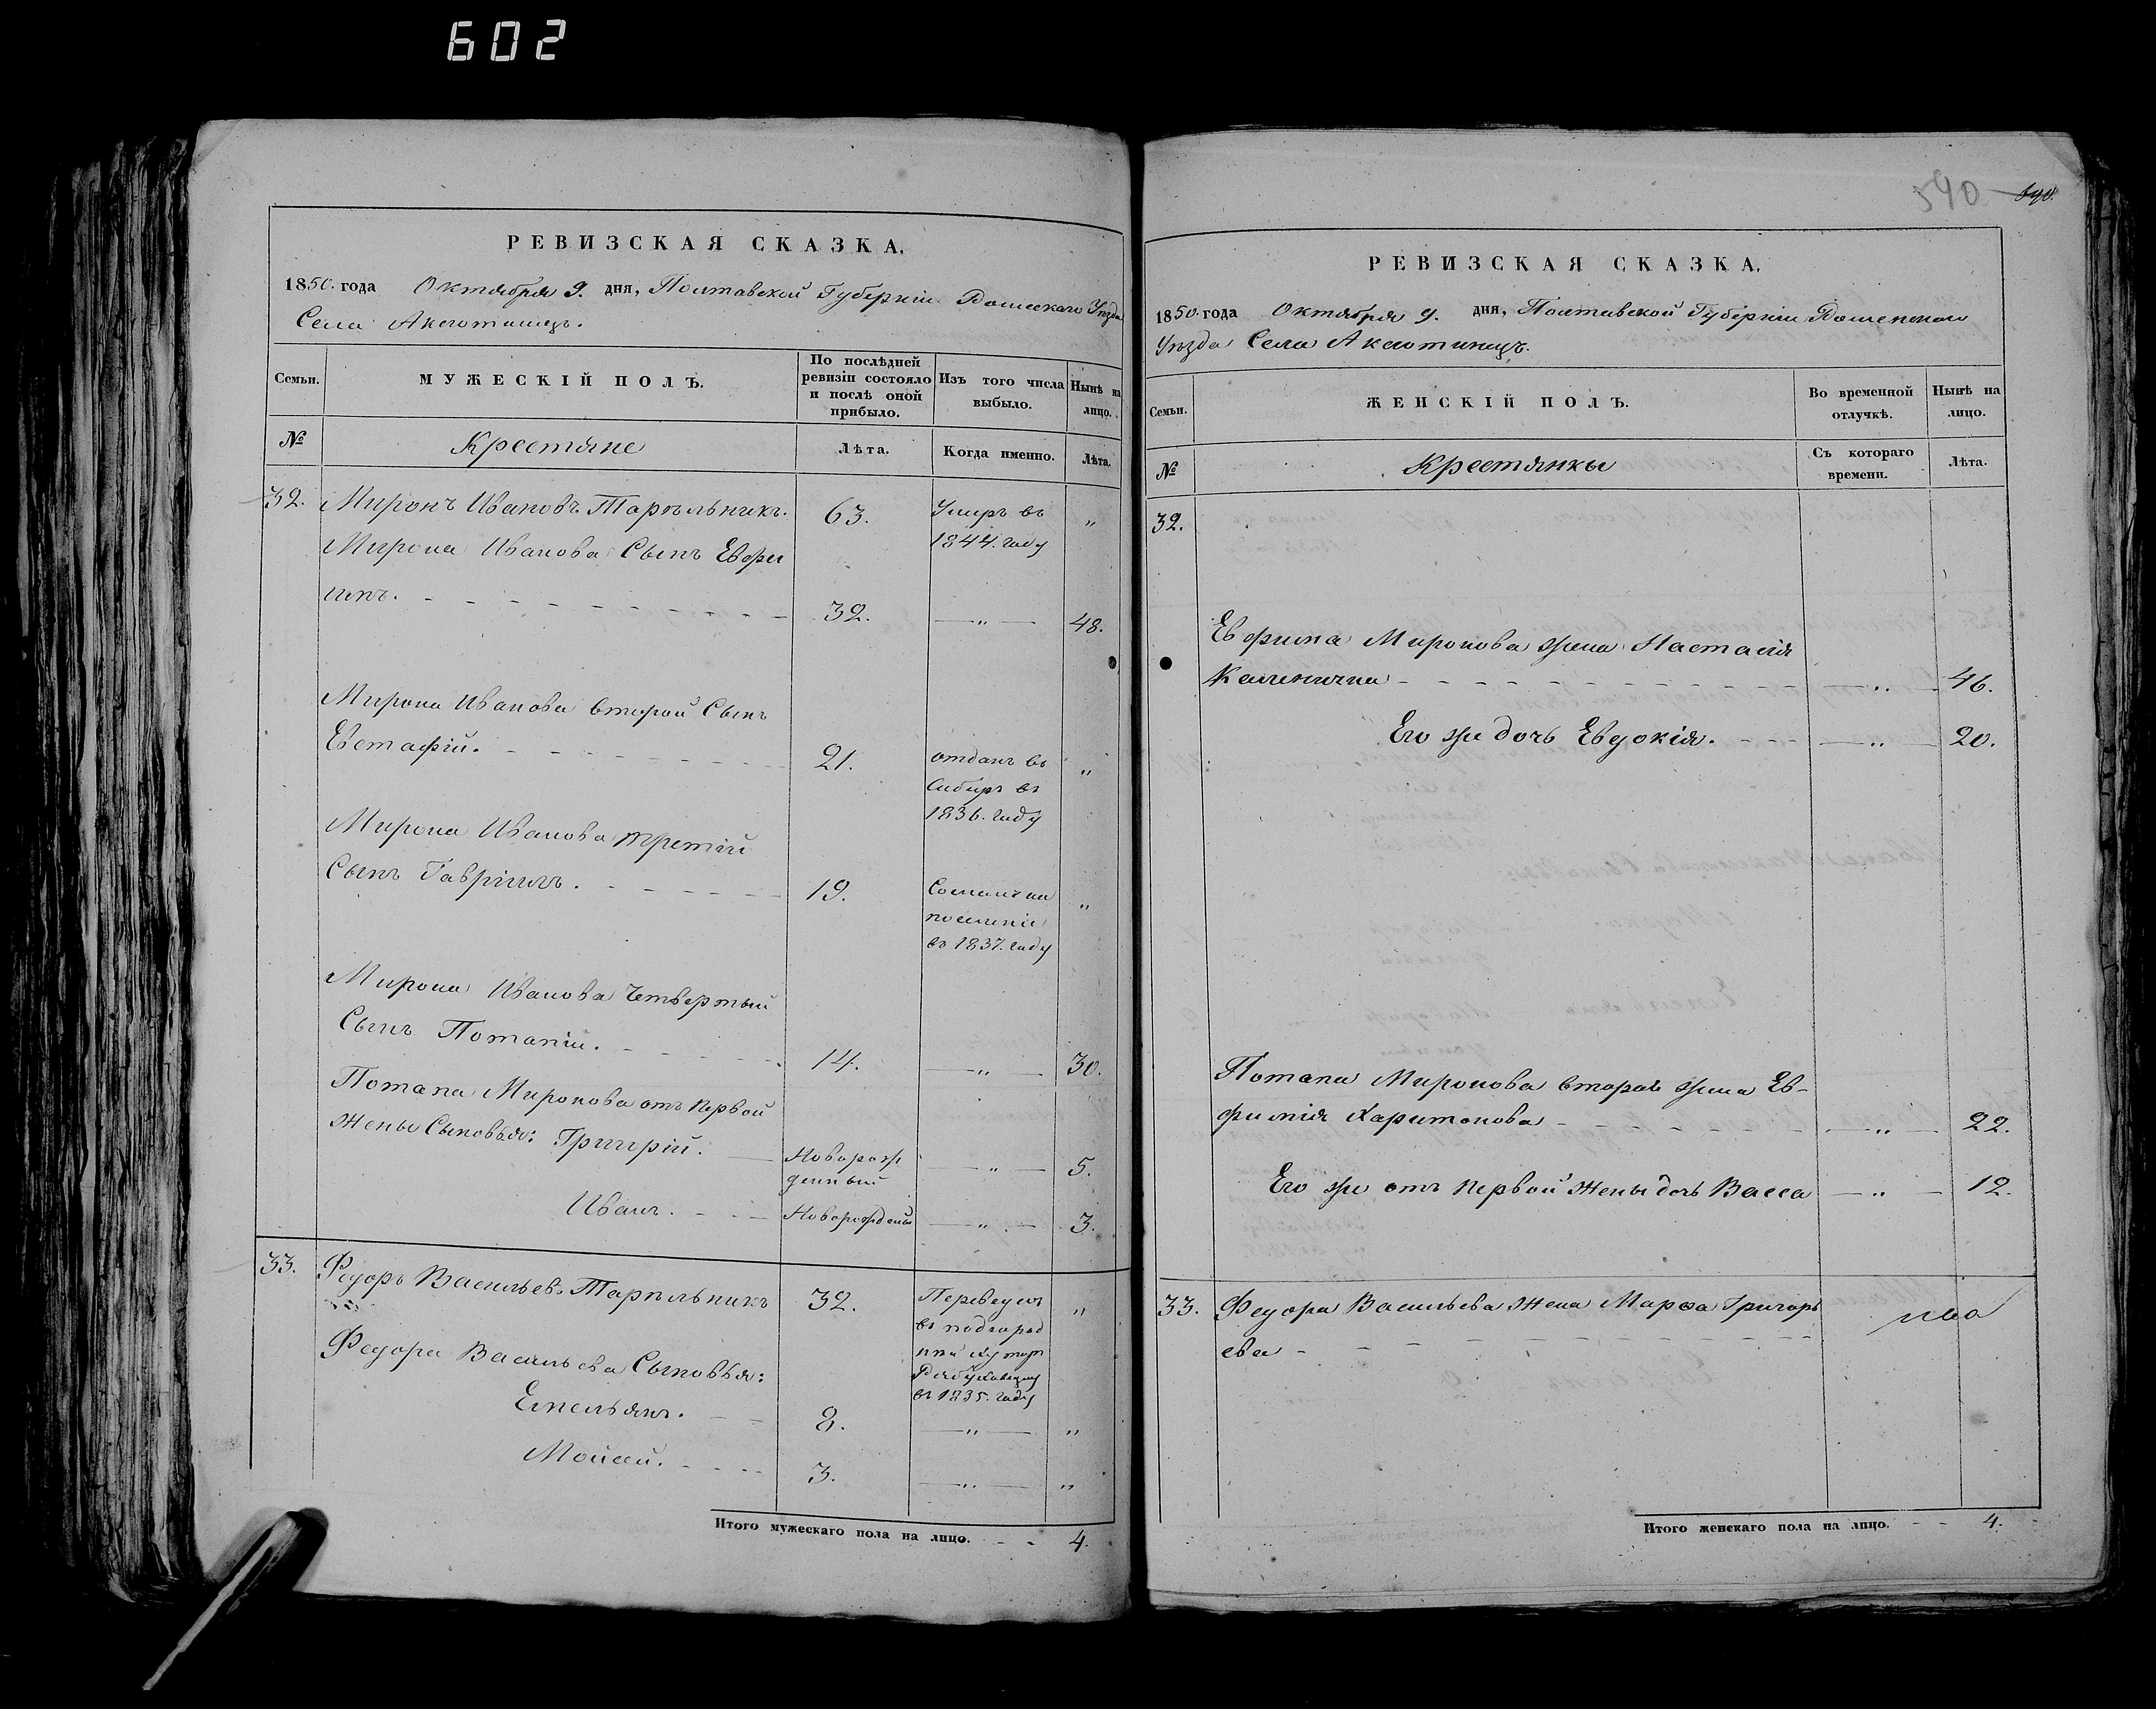 602
РЕВИЗСКАЯ СКАЗКА.
1850. года Октября 9. дня, Полтавской Губерніи Роменскаго Уѣзда
Села Аксютинецъ.
Семьи.
МУЖЕСКІЙ ПОЛЪ.
По послѣдней
ревизіи состояло
и послѣ оной
прибыло.
Изъ того числа
выбыло.
Нынѣ на
лицо.
№
Крестяне
Лѣта.
Когда именно.
Лѣта.
32. Миронъ Ивановъ Тарѣльникъ. 63. Умеръ въ „
1844. году
Мирона Иванова Сынъ Евфи
имъ. 32. — „ — 48.
Мирона Иванова второй Сынъ
Евстафій. 21. отданъ въ „
Сибирь въ
1836. году
Мирона Иванова третій
Сынъ Гавріилъ. 19. Сосланъ на „
поселеніе
въ 1837. году
Мирона Иванова Четвертый
Сынъ Потапій. 14. — „ — 30.
Потапа Миронова отъ первой
жены Сыновья: Григорій. Новорож — „ — 5.
денный
Иванъ. Новорожденый — „ — 3.
33. Федоръ Васильевъ Тарѣльникъ 32. Переведенъ „
въ подгород
ній Хуторъ
въ 1835. году
Федора Васильева Сыновья:
Емельянъ. 8. — „ — „
Мойсей. 3. — „ — „
Итого мужескаго пола на лицо. - - 4.
590 590.
РЕВИЗСКАЯ СКАЗКА.
1850. года Октября 9. дня, Полтавской Губерніи Роменскаго
Уѣзда Села Аксютинецъ.
Семьи.
ЖЕНСКІЙ ПОЛЪ.
Во временной
отлучкѣ.
Нынѣ на
лицо.
№
Крестянки
Съ котораго
времени.
Лѣта.
32.
Евфима Миронова жена Настасія
Каленична — „ — 46.
Его же дочь Евдокія. — „ — 20.
Потапа Миронова вторая жена Ев-
фимія Харитонова — „ — 22.
Его же отъ первой жены дочь Васса — „ — 12.
33. Федора Васильева жена Марфа Григорь
ева
Итого женскаго пола на лицо. - - 4.